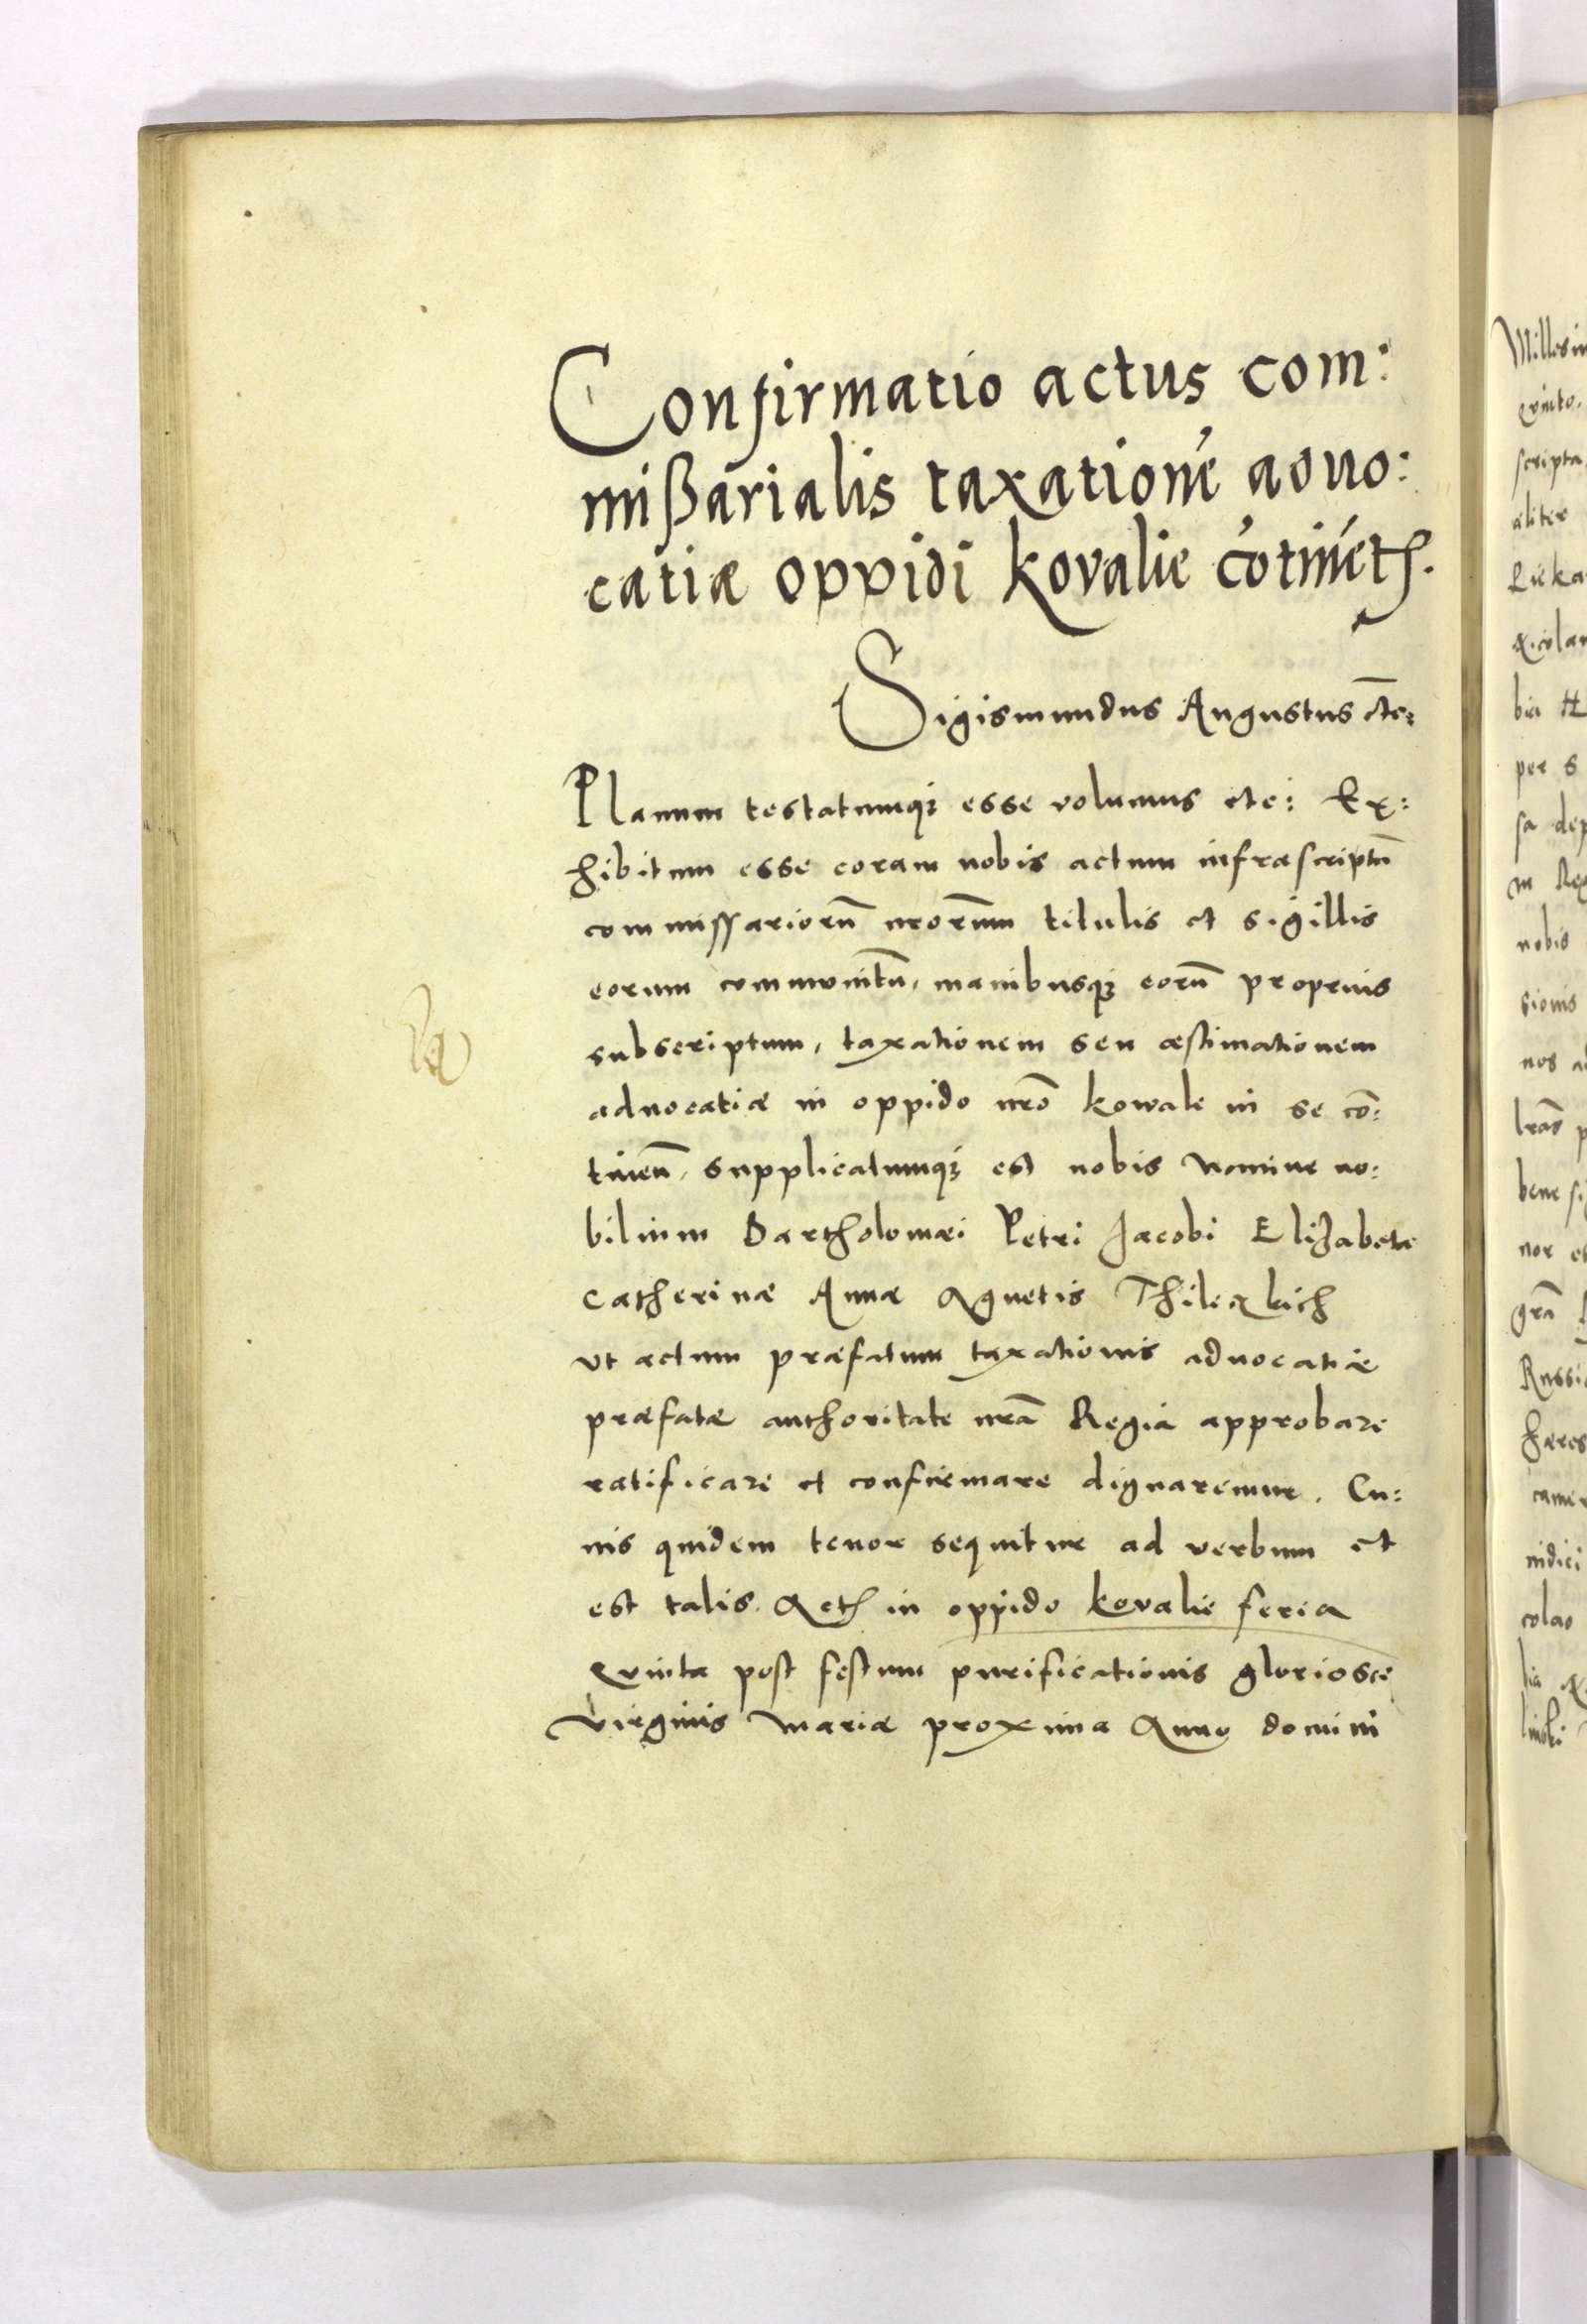 Confirmatio actus com:
mißarialis taxationẽ aduo:
catiæ oppidi kovalie cõtinẽtis.
Sigismundus Augustus etc:
Planum testatumq; esse volumus etc: Ex:
hibitum esse coram nobis actum infrascriptũ
commissariorũ nrorum titulis et sigillis
eorum communitũ, manibusq; eorũ propriis
subscriptum, taxationem seu æstimationem
aduocatiæ in oppido nrõ kowale in se cõ:
tineñ, supplicatumq; est nobis nomine no:
bilium Bartholomæi Petri Jacobi Elizabetæ
Catherinæ Annæ Agnetis
vt actum præfatum taxationis aduocatiæ
præfatæ authoritate nrã Regia approbare
ratificare et confirmare dignaremur. Cu:
ius quidem tenor sequitur ad verbum et
est talis. Actũ in oppido kovalie feria
Quinta post festum purificationis gloriosæ
virginis mariæ proxima Anno domini
Millesi
Quinto.
scripta
aliter
per s
nobis
sionis
nos a
lrãs p
bene si
nor e
grã
Russi
hæres
colao